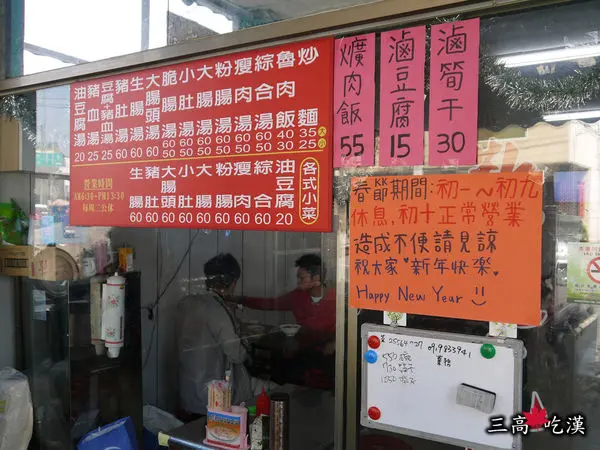 炒麵 大35 小25
魯肉飯 40 30
綜合湯 60 50
瘦肉湯 60 50
粉腸湯 60 50
大腸湯 60 50
小肚湯 60 50
脆腸湯 60 50
大腸頭湯 60
生腸湯 60
豬肚湯 60
豆腐+豬血湯 25
豬血湯 25
油豆腐湯 20
各式小菜
油豆腐 20
綜合 60
瘦肉 60
粉腸 60
大腸 60
小肚 60
大腸頭 60
豬肚 60
生腸 60
營業時間
AM6:30-PM13:30
每周二公休
滷筍干 30
滷豆腐 15
爌肉飯 55
春節期間:初一~初九
休息,初十正常營業
造成不便請見諒
祝大家"新年快樂。
Happy New Year
三高吃漢